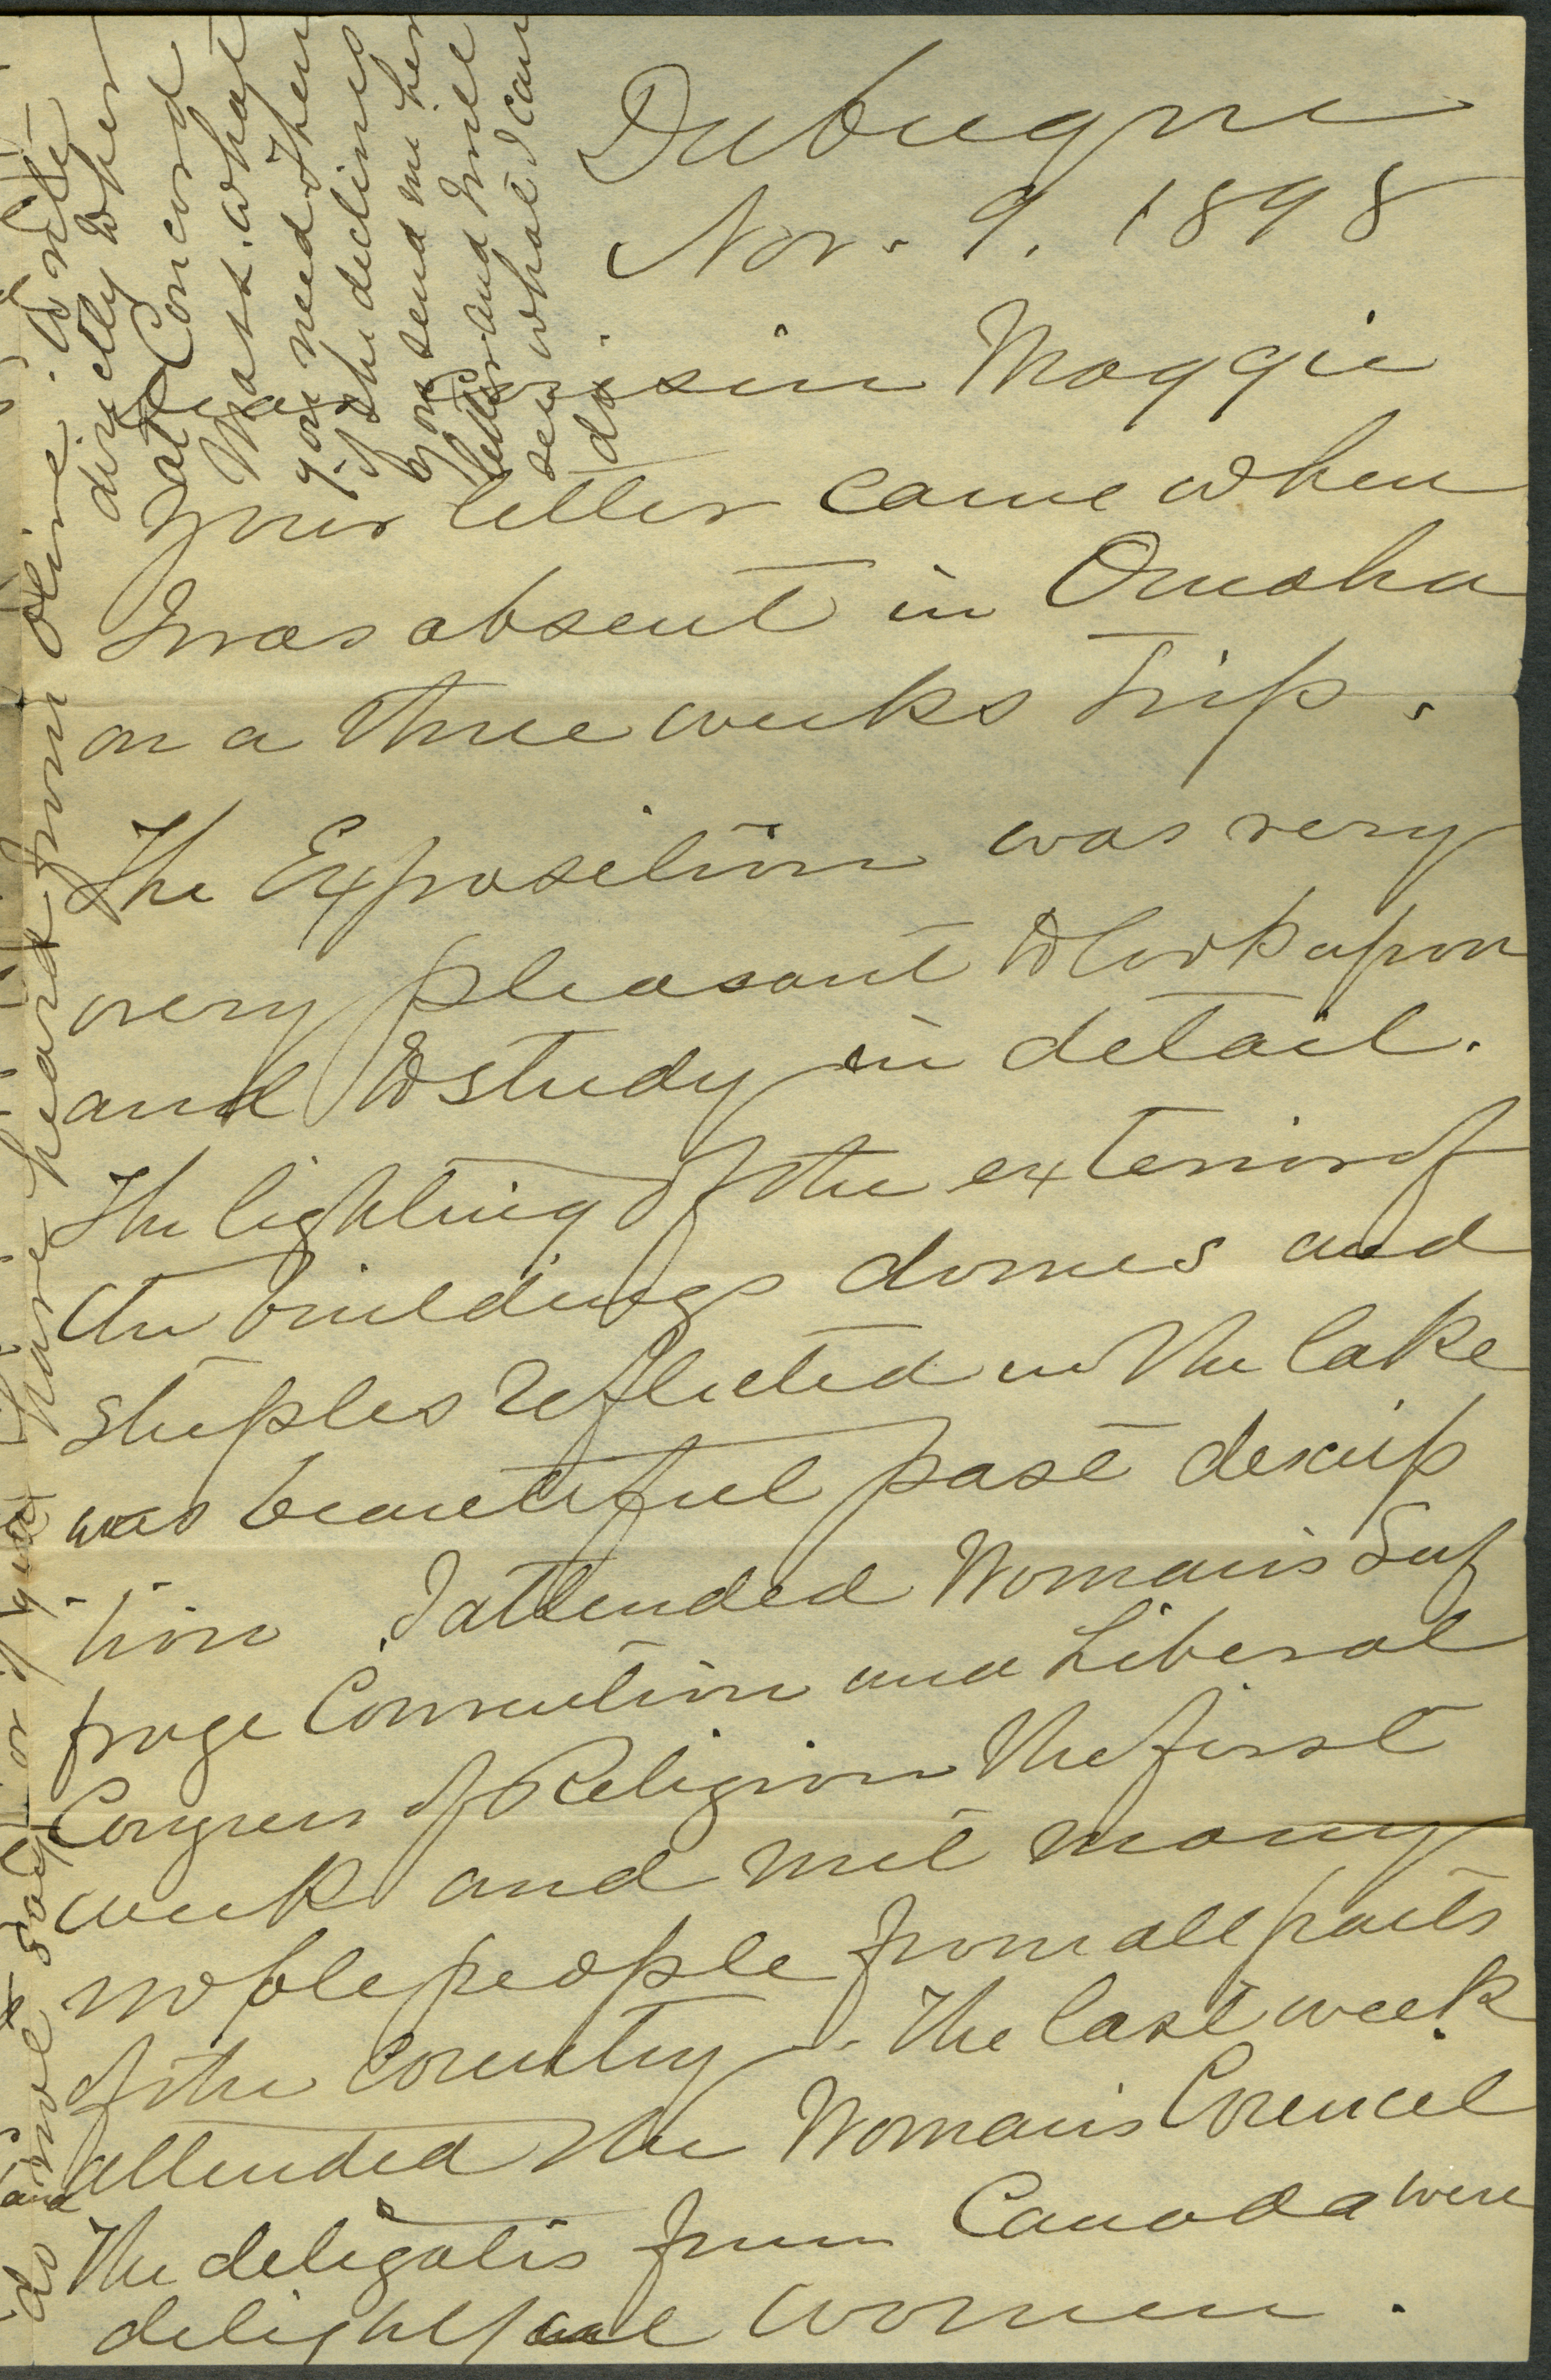 Dubuque
Nov. 9. 1898
Dear Cousin Maggie
Your letter came when
I was absent in Omaha
on a three weeks trip.
The Exposition was very
very pleasant to look upon
and to study in detail.
The lighting of the exterior of
the buildings domes and
steeples reflected in the lake
was beautiful past descrip
tion. I attended Womans Suf
frage Convention and Liberal
Congress of Religion the first
week and met many
noble people from all parts
of the country. The last week
attended the Womans Council
and
The delegates from Canada were
delightful women.
do not say
or if you have heard from Olive. Write
directly to her
at Concord
Mass. what
you need & then
if she declines
you send me her
letter and I will
see what I can
do.